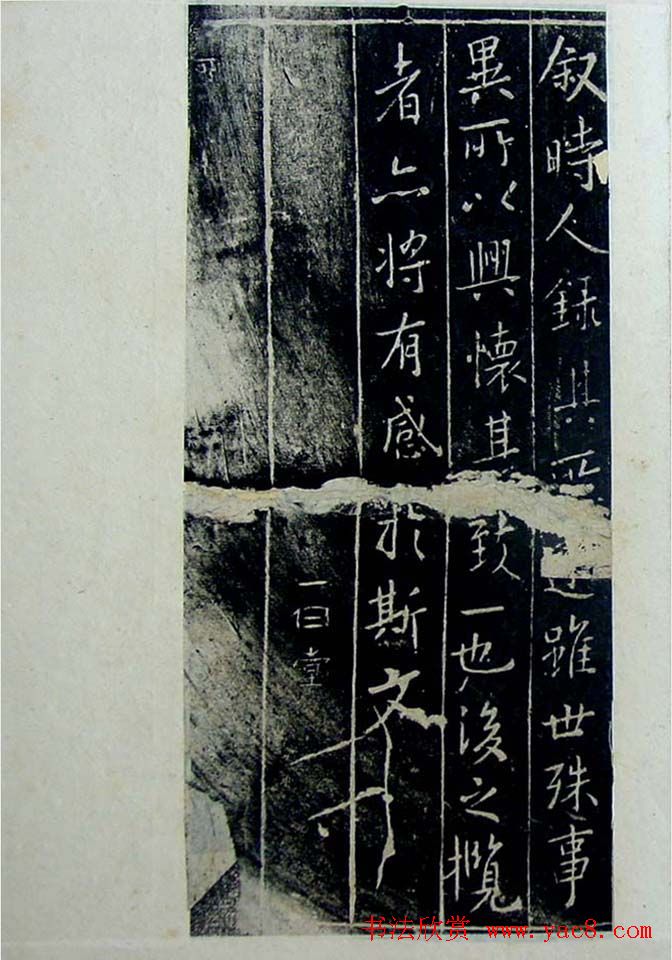 叙時人錄其所述雖世殊事
異所以興懷其致一也後之攬
者亦將有感於斯文
書法欣赏 www.yac8.com